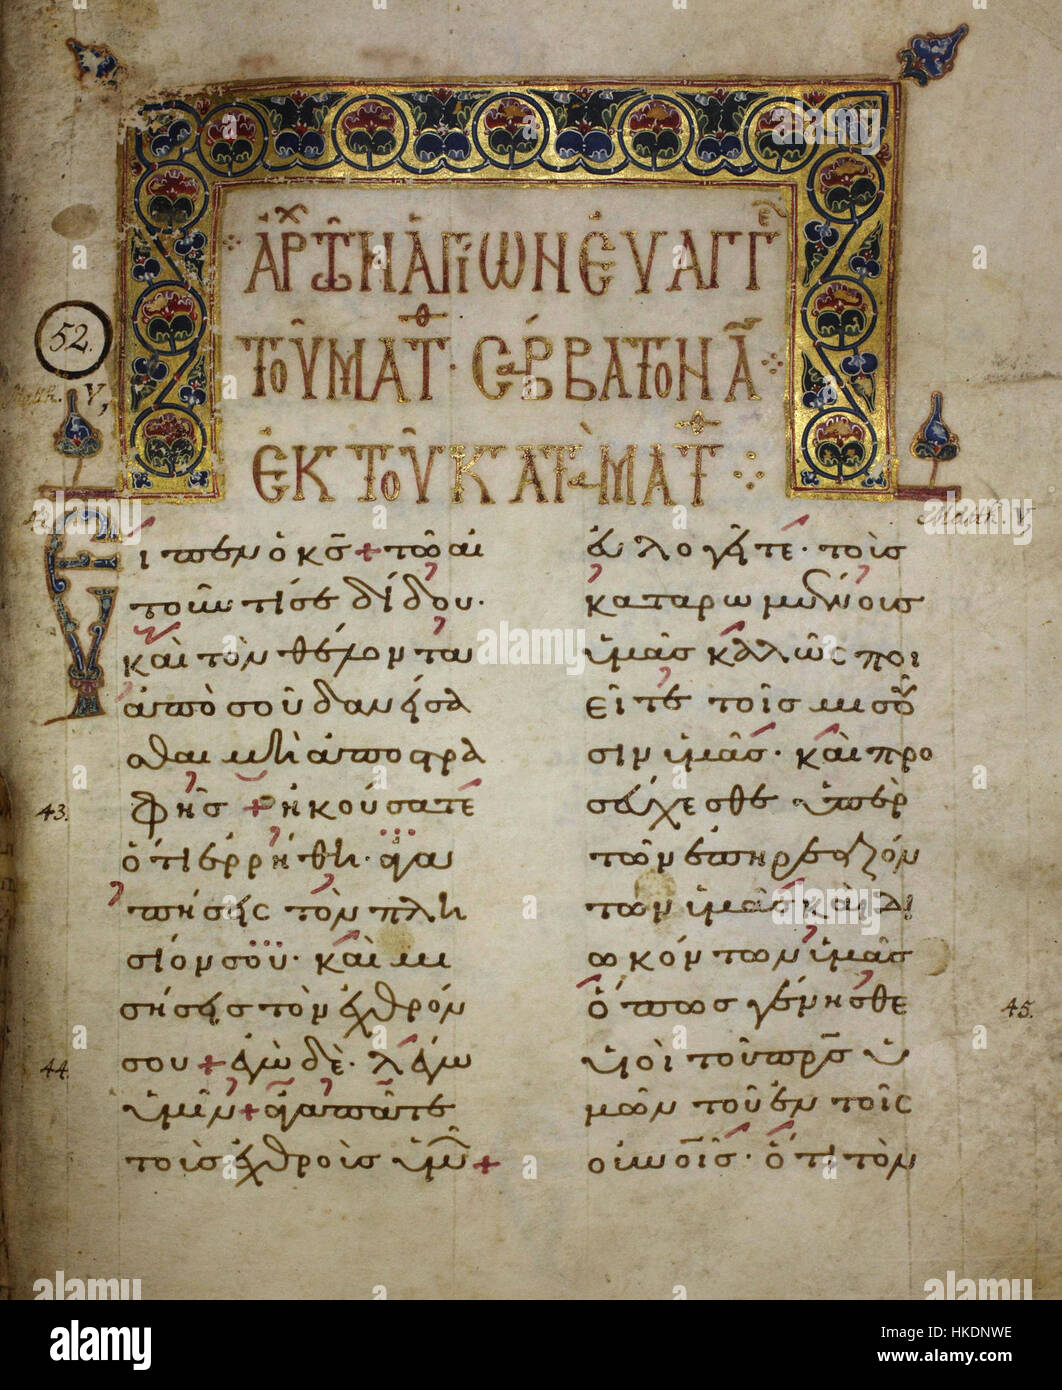 ἈΡΧ ΤῶΝ ἉΓΙΩΝ ΕΥΑΓΓΕ
ΤΟΥ ΜΑΤΘ · ΣΑΒΒΑΤΟΝ Α
ἘΚ ΤΟΥ ΚΑΤΑ ΜΑΤΘ
52.
Matth. V,
Matth. V,
42.
Εἶπεν ὁ κ̅σ̅ + τῶ αἰ
τοῦντί σε δίδου·
καὶ τὸν θέλοντα
ἀπὸ σοῦ δανείσα
σθαι μὴ ἀποστρα
φῆς + ἠκούσατε
43.
ὅτι ἐρρήθη· ἀγα
πήσεις τὸν πλη
σίον σου· καὶ μι
σήσεις τὸν ἐχθρόν
σου + ἐγὼ δὲ· λέγω
44.
ὑμῖν + ἀγαπᾶτε
τοὺς ἐχθροὺς ὑμῶν +
εὐλογεῖτε· τοὺς
καταρωμένους
ὑμᾶς καλῶς ποι
εῖτε τοῖς μισοῦ
σιν ὑμᾶς· καὶ προ
σεύχεσθε ὑπὲρ
τῶν ἐπηρεαζόν
των ὑμᾶς καὶ δι
ωκόντων ὑμᾶς
ὅπως γένησθε
45.
υἱοὶ τοῦ π̅ρ̅σ̅ ὑ
μῶν τοῦ ἐν τοῖς
οὐνοῖς· ὅτι τὸν
alamy
a
alamy stock photo
Image ID: HKDNWE
www.alamy.com